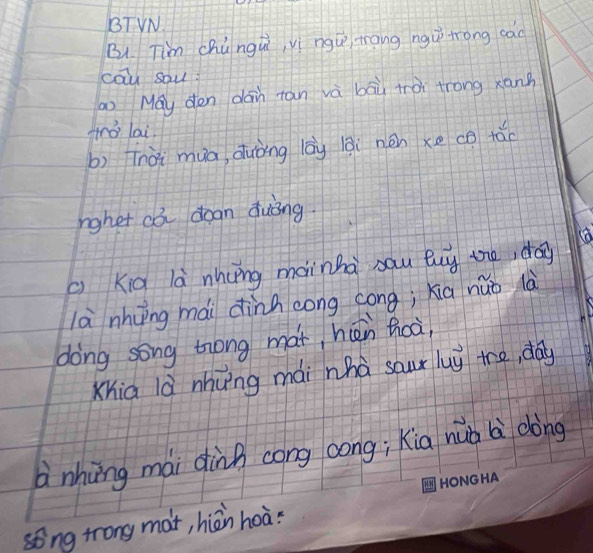 BTVN
B1. Tìm chủ ngữ, vị ngữ, trạng ngữ trong các
câu sau:
a) Mây đen dần tan và bầu trời trong xanh
trở lại.
b) Trời mưa, đường lầy lội nên xe cộ tắc
nghẹt cả đoạn đường.
c) Kia là những mái nhà sau luỹ tre, đây
là những mái đình cong cong; kia nữa là
dòng sông trong mát, hiền hoà,
Khia là những mái nhà sau luỹ tre, đây
à những mái đình cong cong; Kia nữa là dòng
HONG HA
sông trong mát, hiền hoà.